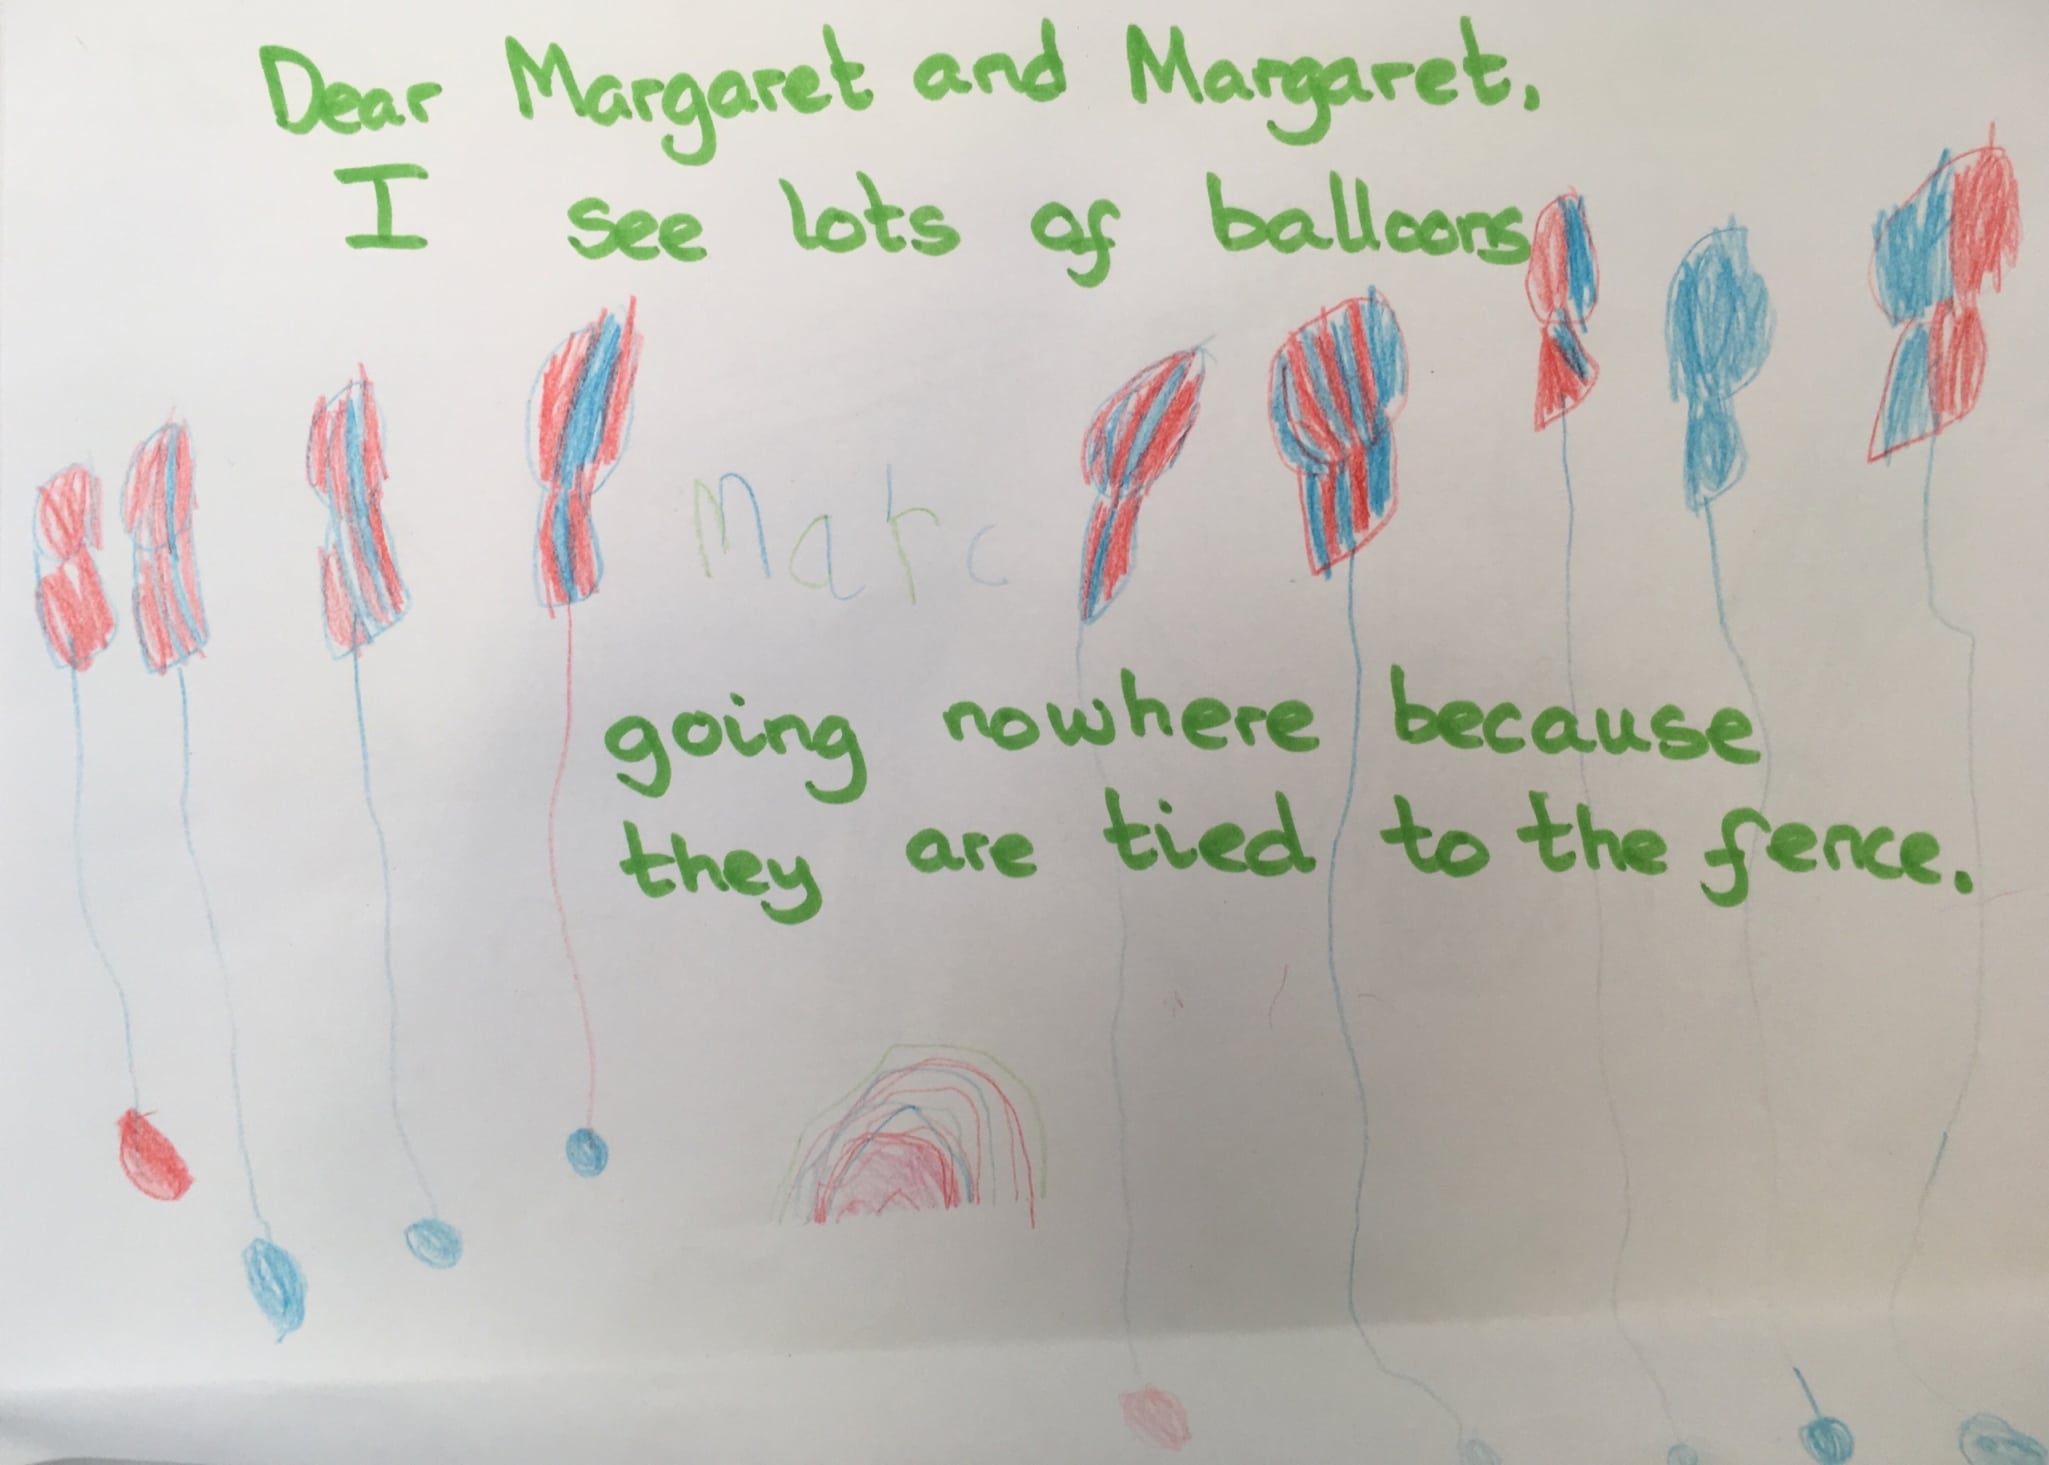 Dear Margaret and Margaret,
I see lots of balloons
Marc
going nowhere because
they are tied to the fence.